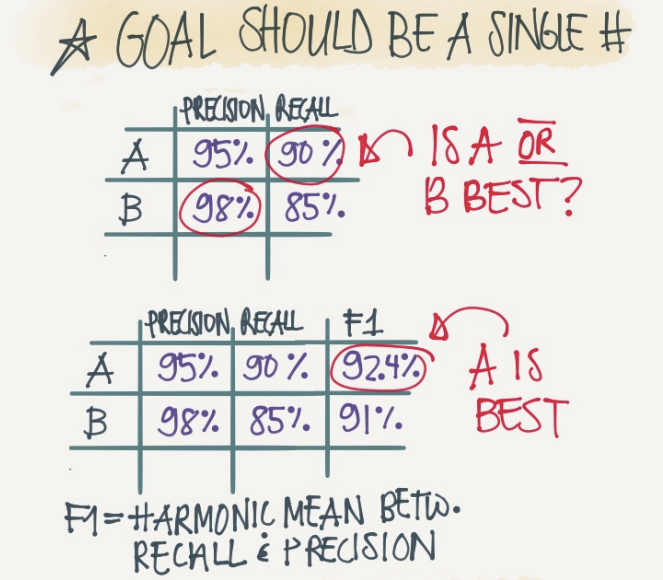 A GOAL SHOULD BE A SINGLE #
PRECISION RECALL
A 95% 90%
B 98% 85%
IS A OR
B BEST?
PRECISION RECALL F1
A 95% 90% 92.4%
B 98% 85% 91%
A IS
BEST
F1 = HARMONIC MEAN BETW.
RECALL & PRECISION